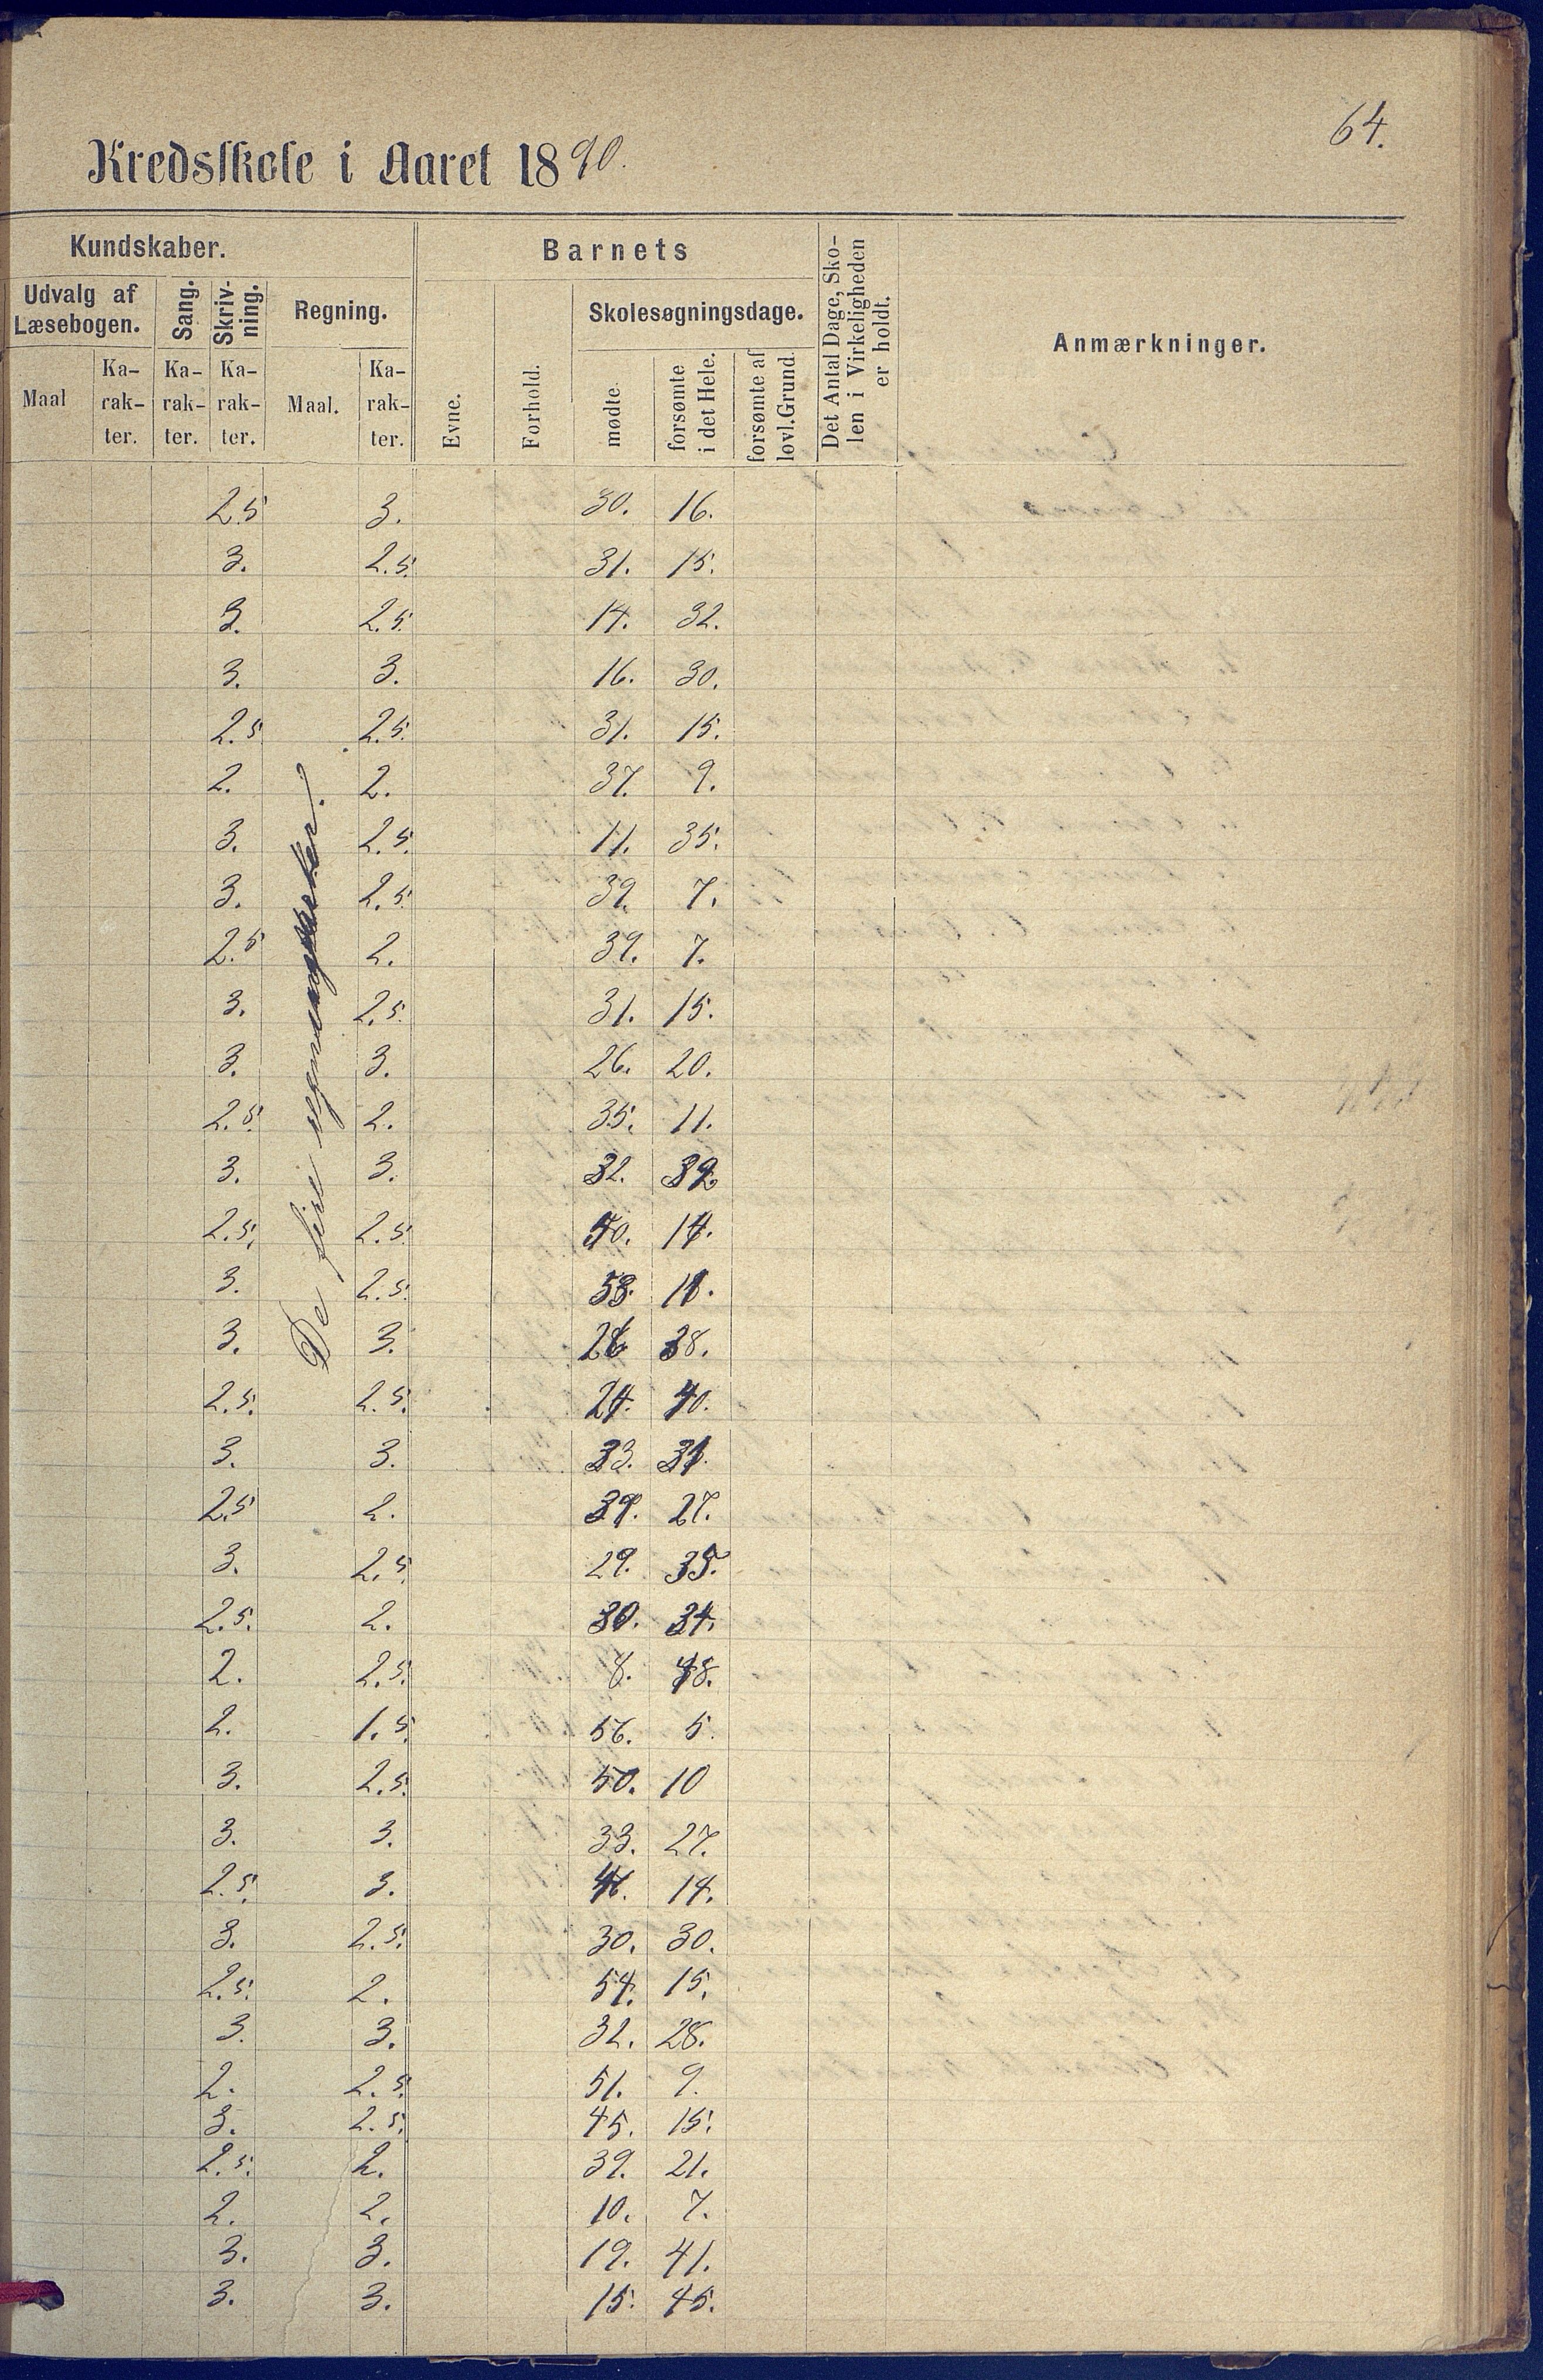 64.
Kredsskole i Aaret 1890.
Kundskaber. Barnets Det Antal Dage, Sko-len i Virkeligheden er holdt. Anmærkninger.
Udvalg af Læsebogen. Sang. Skriv-ning. Regning. Skolesøgningsdage.
Maal Ka-rak-ter. Ka-rak-ter. Ka-rak-ter. Maal. Ka-rak-ter. Evne. Forhold. mødte. forsømte i det Hele. forsømte af lovl. Grund.
De fire
2.5 3. 30. 16.
3. 2.5. 31. 15.
3. 2.5. 14. 32.
3. 3. 16. 30.
2.5. 2.5. 31. 15.
2. 2. 37. 9.
3. 2.5. 11. 35.
3. 2.5. 39. 7.
2.5 2. 39. 7.
3. 2.5. 31. 15.
3. 3. 26. 20.
2.5. 2. 35. 11.
3. 3. 32.
2.5. 2.5. 14.
3. 2.5.
3. 3. 38.
2.5. 2.5. 24. 40.
3. 3. 33. 31.
2.5 2. 27.
3. 2.5. 29. 35.
2.5. 2. 30. 34.
2. 2.5. 48.
2. 1.5. 56. 5.
3. 2.5. 50. 10
3. 3. 33. 27.
2.5. 3. 46. 14.
3. 2.5. 30. 30.
2.5. 2. 54. 15.
3. 3. 32. 28.
2. 2.5. 51. 9.
3. 2.5. 45. 15.
2.5. 2. 39. 21.
2. 2. 10. 7.
3. 3. 19. 41.
3. 3. 15. 45.